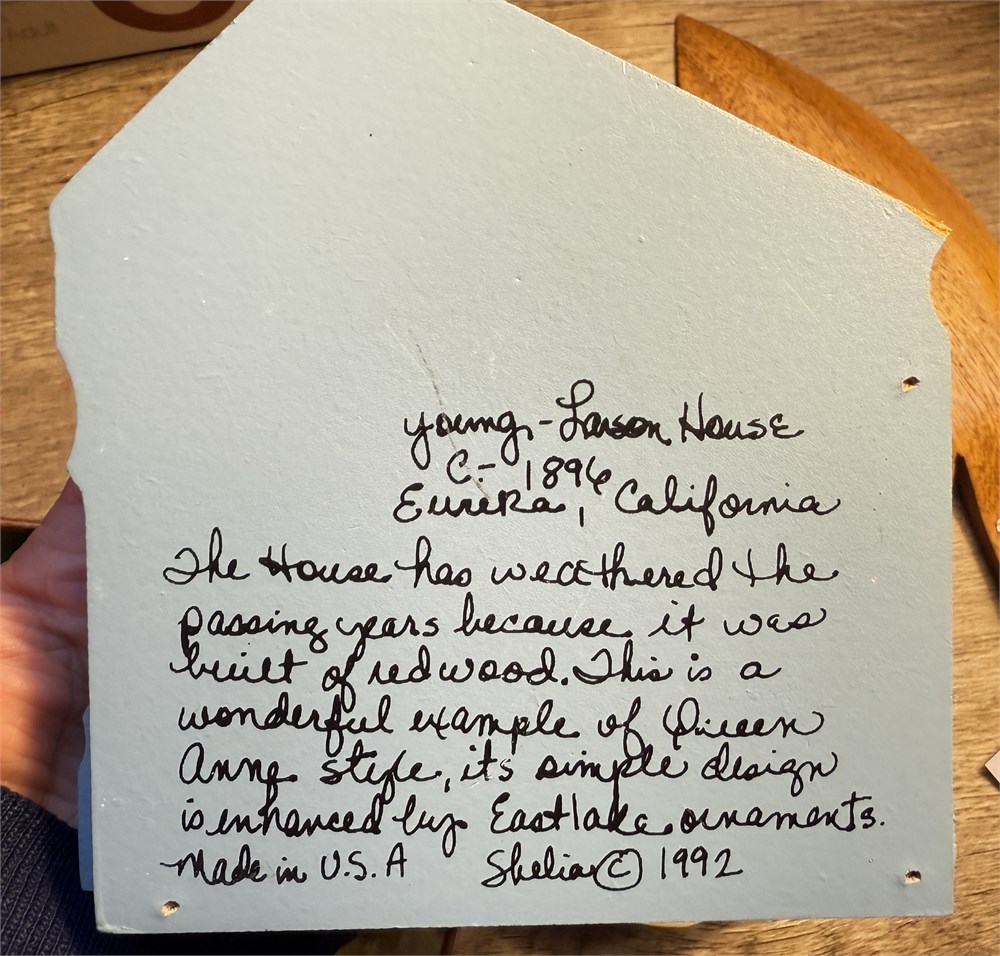 young-Larson House
C- 1896
Eureka, California
The House has weathered the
passing years because it was
built of redwood. This is a
wonderful example of Queen
Anne style, its simple design
is enhanced by Eastlake ornaments.
Made in U.S.A Shelia © 1992